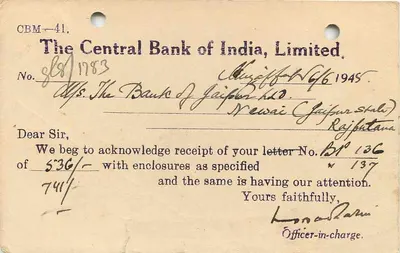 CBM—41.
The Central Bank of India, Limited.
No. 1783 6/6/1945
M/s. The Bank of Jaipur Ltd.
Newai (Jaipur State)
Rajputana
Dear Sir,
We beg to acknowledge receipt of your letter No. BP 136
of 536/- with enclosures as specified " 137
741/- and the same is having our attention.
Yours faithfully,
Officer-in-charge.